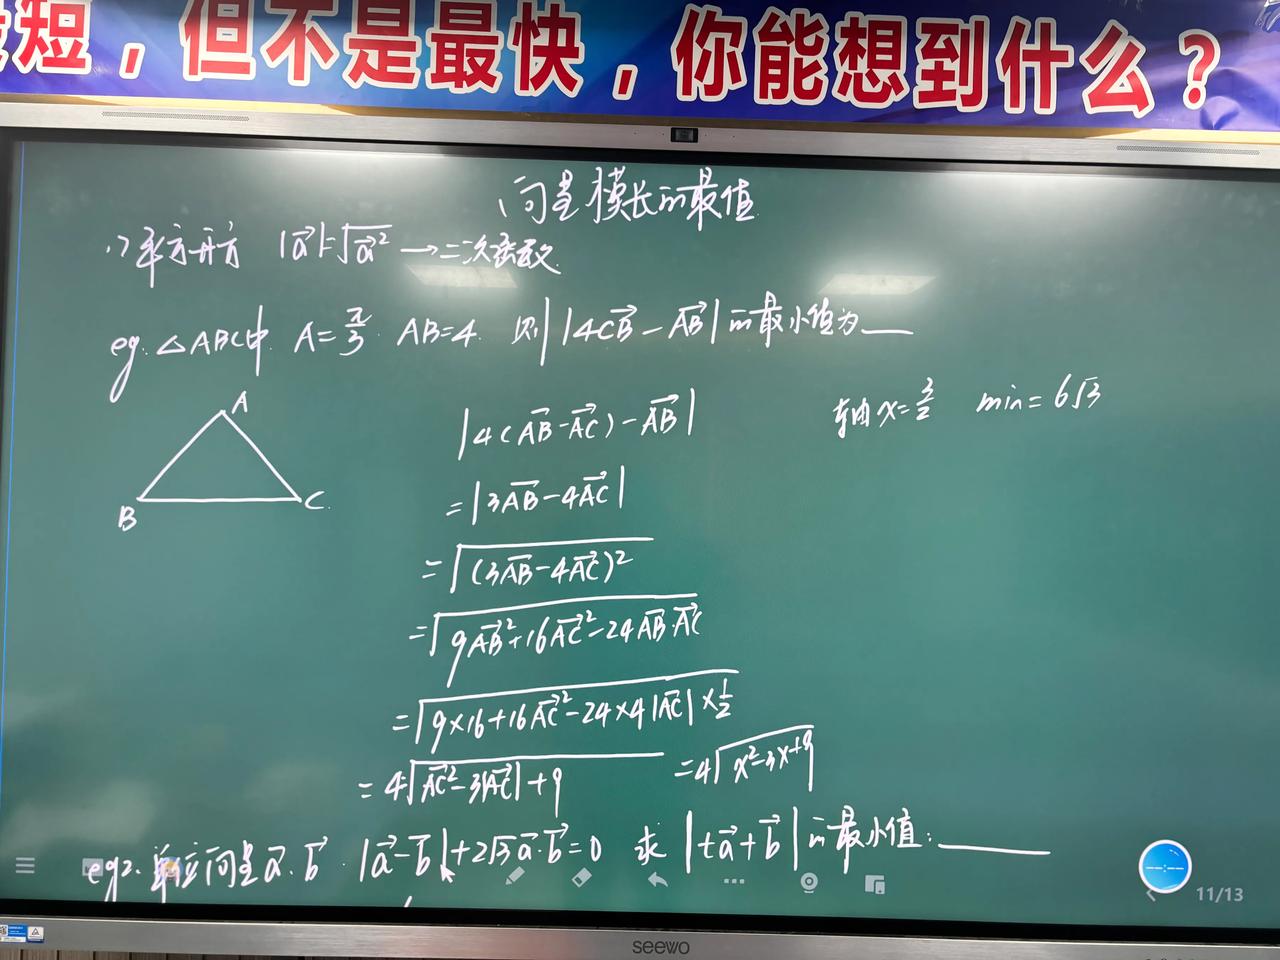 短，但不是最快，你能想到什么？
向量模长的最值
(1) 平方开方 |a⃗|=√(a⃗²) → 二次函数
eg. △ABC中 A=π/3 . AB=4. 则 |4CB⃗-AB⃗| 的最小值为___
A
B
C
|4(AB⃗-AC⃗)-AB⃗|
轴x=3/2 min=6√3
=|3AB⃗-4AC⃗|
=√((3AB⃗-4AC⃗)²)
=√(9AB⃗²+16AC⃗²-24AB⃗·AC⃗)
=√(9×16+16AC⃗²-24×4|AC⃗|×1/2)
=4√(AC⃗²-3|AC⃗|+9) =4√(x²-3x+9)
eg2. 单位向量a⃗.b⃗ . |a⃗-b⃗|+2√3a⃗·b⃗=0 求 |ta⃗+b⃗| 的最小值:____
11/13
seewo